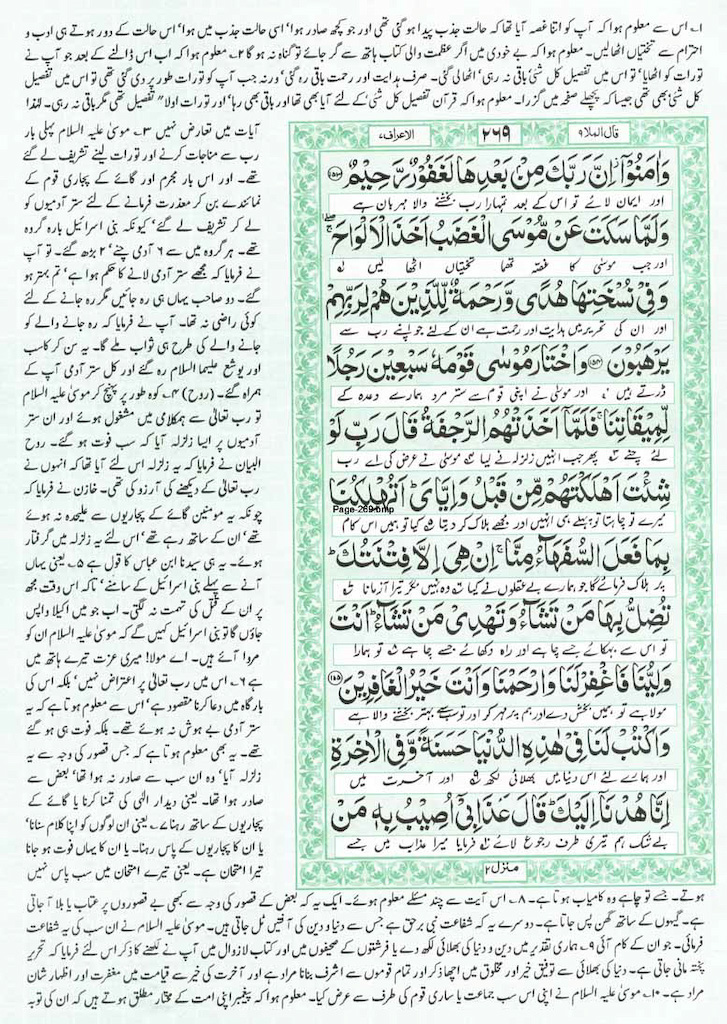 ۱۔ اس سے معلوم ہوا کہ آپ کو اتنا غصہ آیا تھا کہ حالت جذب پیدا ہو گئی تھی اور جو کچھ صادر ہوا‘ اسی حالت جذب میں ہوا‘ اس حالت کے دور ہوتے ہی ادب و
احترام سے تختیاں اٹھالیں۔ معلوم ہوا کہ بے خودی میں اگر عظمت والی کتاب ہاتھ سے گر جائے تو گناہ نہ ہو گا ۲۔ معلوم ہوا کہ اب اس ڈالنے کے بعد جو آپ نے
تورات کو اٹھایا‘ تو اس میں تفصیل کل شئ باقی نہ رہی‘ اٹھالی گئی۔ صرف ہدایت اور رحمت باقی رہ گئی‘ ورنہ جب آپ کو تورات طور پر دی گئی تھی تو اس میں تفصیل
کل شئ بھی تھی جیسا کہ پچھلے صفحہ میں گزرا۔ معلوم ہوا کہ قرآن تفصیل کل شئ کے لئے آیا بھی تھا اور باقی بھی رہا‘ اور تورات اولا" تفصیل تھی مگر باقی نہ رہی۔ لہٰذا
قال الملا ۹
۲۶۹
الاعراف ۷
وَاٰمَنُوْۤا اِنَّ رَبَّكَ مِنْۢ بَعْدِهَا لَغَفُوْرٌ رَّحِیْمٌ ﴿۱۵۳﴾
اور ایمان لائے تو اس کے بعد تمہارا رب بخشنے والا مہربان ہے
وَلَمَّا سَكَتَ عَنْ مُّوْسَی الْغَضَبُ اَخَذَ الْاَلْوَاحَ ۚ
اور جب موسیٰ کا غصہ تھما تختیاں اٹھا لیں
وَفِیْ نُسْخَتِهَا هُدًی وَّرَحْمَةٌ لِّلَّذِیْنَ هُمْ لِرَبِّهِمْ
اور ان کی تحریر میں ہدایت اور رحمت ہے ان کے لئے جو اپنے رب سے
یَرْهَبُوْنَ ﴿۱۵۴﴾ وَاخْتَارَ مُوْسٰی قَوْمَهٗ سَبْعِیْنَ رَجُلًا
ڈرتے ہیں اور موسیٰ نے اپنی قوم سے ستر مرد ہمارے وعدہ کے
لِّمِیْقَاتِنَا ۚ فَلَمَّاۤ اَخَذَتْهُمُ الرَّجْفَةُ قَالَ رَبِّ لَوْ
لئے چنے پھر جب انہیں زلزلہ نے لیا موسیٰ نے عرض کی اے رب
شِئْتَ اَهْلَكْتَهُمْ مِّنْ قَبْلُ وَاِیَّایَ ؕ اَتُهْلِكُنَا
میرے تو چاہتا تو پہلے ہی انہیں اور مجھے ہلاک کر دیتا کیا تو ہمیں اس کام
Page-269.bmp
بِمَا فَعَلَ السُّفَهَآءُ مِنَّا ۚ اِنْ هِیَ اِلَّا فِتْنَتُكَ ؕ
پر ہلاک فرمائے گا جو ہمارے بے عقلوں نے کیا وہ نہیں مگر تیرا آزمانا
تُضِلُّ بِهَا مَنْ تَشَآءُ وَتَهْدِیْ مَنْ تَشَآءُ ؕ اَنْتَ
تو اس سے بہکائے جسے چاہے اور راہ دکھائے جسے چاہے تو ہمارا
وَلِیُّنَا فَاغْفِرْ لَنَا وَارْحَمْنَا وَاَنْتَ خَیْرُ الْغٰفِرِیْنَ ﴿۱۵۵﴾
مولا ہے تو ہمیں بخش دے اور ہم پر مہر کر اور تو سب سے بہتر بخشنے والا ہے
وَاكْتُبْ لَنَا فِیْ هٰذِهِ الدُّنْیَا حَسَنَةً وَّفِی الْاٰخِرَةِ
اور ہمارے لئے اس دنیا میں بھلائی لکھ اور آخرت میں
اِنَّا هُدْنَاۤ اِلَیْكَ ؕ قَالَ عَذَابِیْۤ اُصِیْبُ بِهٖ مَنْ
بے شک ہم تیری طرف رجوع لائے فرمایا میرا عذاب میں جسے
منزل ۲
آیات میں تعارض نہیں ۳۔ موسیٰ علیہ السلام پہلی بار
رب سے مناجات کرنے اور تورات لینے تشریف لے گئے
تھے۔ اور اس بار مجرم اور گائے کے پجاری قوم کے
نمائندے بن کر معذرت فرمانے کے لئے ستر آدمیوں کو
لے کر تشریف لے گئے‘ کیونکہ بنی اسرائیل بارہ گروہ
تھے۔ ہر گروہ میں سے ۶ آدمی چنے‘ ۲ بڑھ گئے۔ تو آپ
نے فرمایا کہ مجھے ستر آدمی لانے کا حکم ہوا ہے‘ تم بہتر ہو
گئے۔ دو صاحب یہاں ہی رہ جائیں مگر رہ جانے کے لئے
کوئی راضی نہ تھا۔ آپ نے فرمایا کہ رہ جانے والے کو
جانے والے کی طرح ہی ثواب ملے گا۔ یہ سن کر کاسب
اور یوشع علیہما السلام رہ گئے اور کل ستر آدمی آپ کے
ہمراہ گئے۔ (روح) ۴۔ کوہ طور پر پہنچ کر موسیٰ علیہ السلام
تو رب تعالیٰ سے ہمکلامی میں مشغول ہوئے اور ان ستر
آدمیوں پر ایسا زلزلہ آیا کہ سب فوت ہو گئے۔ روح
البیان نے فرمایا کہ یہ زلزلہ اس لئے آیا تھا کہ انہوں نے
رب تعالیٰ کے دیکھنے کی آرزو کی تھی۔ خازن نے فرمایا کہ
چونکہ یہ مومنین گائے کے پجاریوں سے علیحدہ نہ ہوئے
تھے۔ ان کے ساتھ رہے تھے‘ اس لئے یہ زلزلہ میں گرفتار
ہوئے۔ یہ ہی سیدنا ابن عباس کا قول ہے ۵۔ یعنی یہاں
آنے سے پہلے بنی اسرائیل کے سامنے‘ تاکہ اس وقت مجھ
پر ان کے قتل کی تہمت نہ لگتی۔ اب جو میں اکیلا واپس
جاؤں گا تو بنی اسرائیل کہیں گے کہ موسیٰ علیہ السلام ان کو
مروا آئے ہیں۔ اے مولا! میری عزت تیرے ہاتھ میں
ہے ۶۔ اس میں رب تعالیٰ پر اعتراض نہیں‘ بلکہ اس کی
بارگاہ میں دعا کرنا مقصود ہے‘ اس سے معلوم ہوتا ہے کہ یہ
ستر آدمی بے ہوش نہ ہوئے تھے۔ بلکہ فوت ہی ہو گئے
تھے۔ یہ بھی معلوم ہوتا ہے کہ جس قصور کی وجہ سے یہ
زلزلہ آیا‘ وہ ان سب سے صادر نہ ہوا تھا‘ بعض سے
صادر ہوا تھا۔ یعنی دیدار الٰہی کی تمنا کرنا یا گائے کے
پجاریوں کے ساتھ رہنا ۷۔ یعنی ان لوگوں کو اپنا کلام سنانا‘
یا ان کا پجاریوں کے پاس رہنا۔ یا ان کا یہاں فوت ہو جانا
تیرا امتحان ہے۔ یعنی تیرے امتحان میں سب پاس نہیں
ہوتے۔ جسے تو چاہے وہ کامیاب ہوتا ہے۔ ۸۔ اس آیت سے چند مسئلے معلوم ہوئے۔ ایک یہ کہ بعض کے قصور کی وجہ سے کبھی بے قصوروں پر عتاب یا بلا آ جاتی
ہے۔ گیہوں کے ساتھ گھن پس جاتا ہے۔ دوسرے یہ کہ شفاعت نبی برحق ہے جس سے دنیا و دین کی آفتیں ٹل جاتی ہیں۔ موسیٰ علیہ السلام نے ان سب کی یہ شفاعت
فرمائی۔ جو ان کے کام آئی ۹۔ ہماری تقدیر میں دین و دنیا کی بھلائی لکھ دے یا فرشتوں کے صحیفوں میں اور کتاب لازوال میں آپ نے لکھنے کا ذکر اس لئے فرمایا کہ تحریر
پختہ مانی جاتی ہے۔ دنیا کی بھلائی سے توفیق خیر اور مخلوق میں اچھا ذکر اور تمام قوموں سے اشرف بنانا مراد ہے اور آخرت کی خیر سے قیامت میں مغفرت اور اظہار شان
مراد ہے۔ ۱۰۔ موسیٰ علیہ السلام نے اپنی اس سب جماعت یا ساری قوم کی طرف سے عرض کیا۔ معلوم ہوا کہ پیغمبر اپنی امت کے مختار مطلق ہوتے ہیں کہ ان کی توبہ